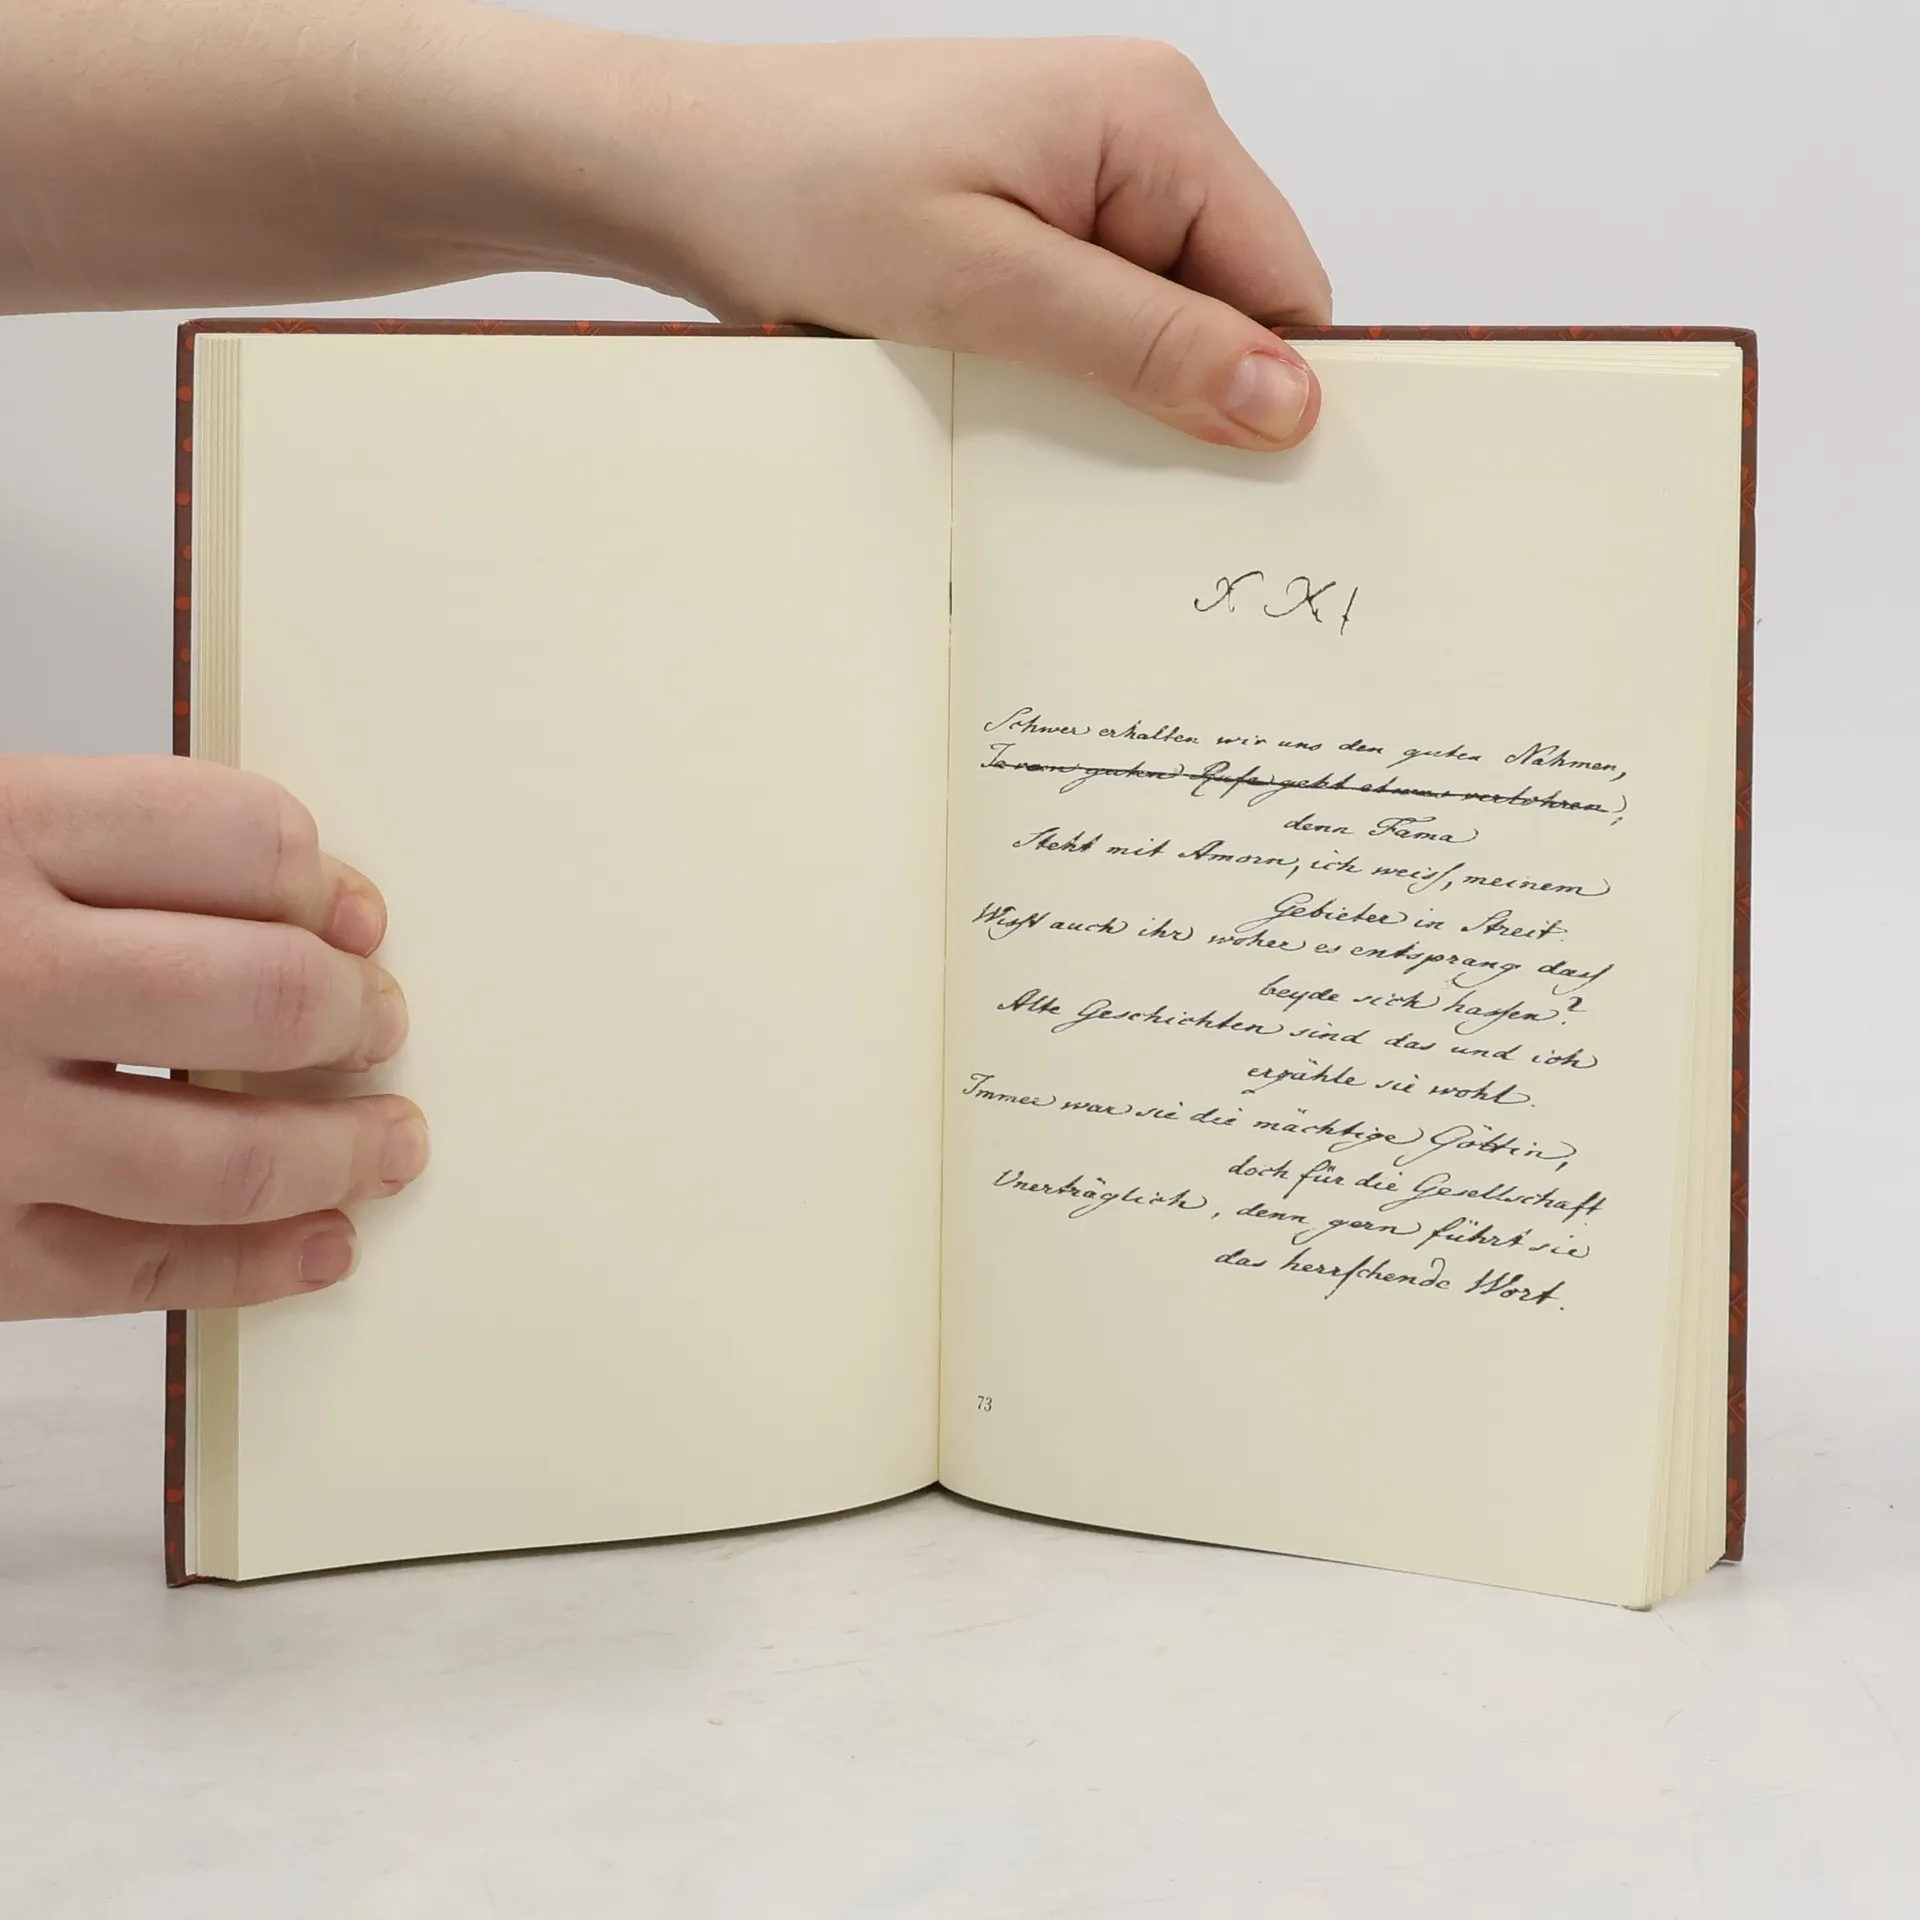 X X I
Schwer erhalten wir uns den guten Nahmen,
Ja vom guten Rufe geht etwas verlohren,
denn Fama
Steht mit Amorn, ich weiſs, meinem
Gebieter in Streit.
Wiſst auch ihr woher es entsprang daſs
beyde sich haſsen?
Alte Geschichten sind das und ich
erzähle sie wohl.
Immer war sie die mächtige Göttin,
doch für die Gesellschaft
Unerträglich, denn gern führt sie
das herrſchende Wort.
73